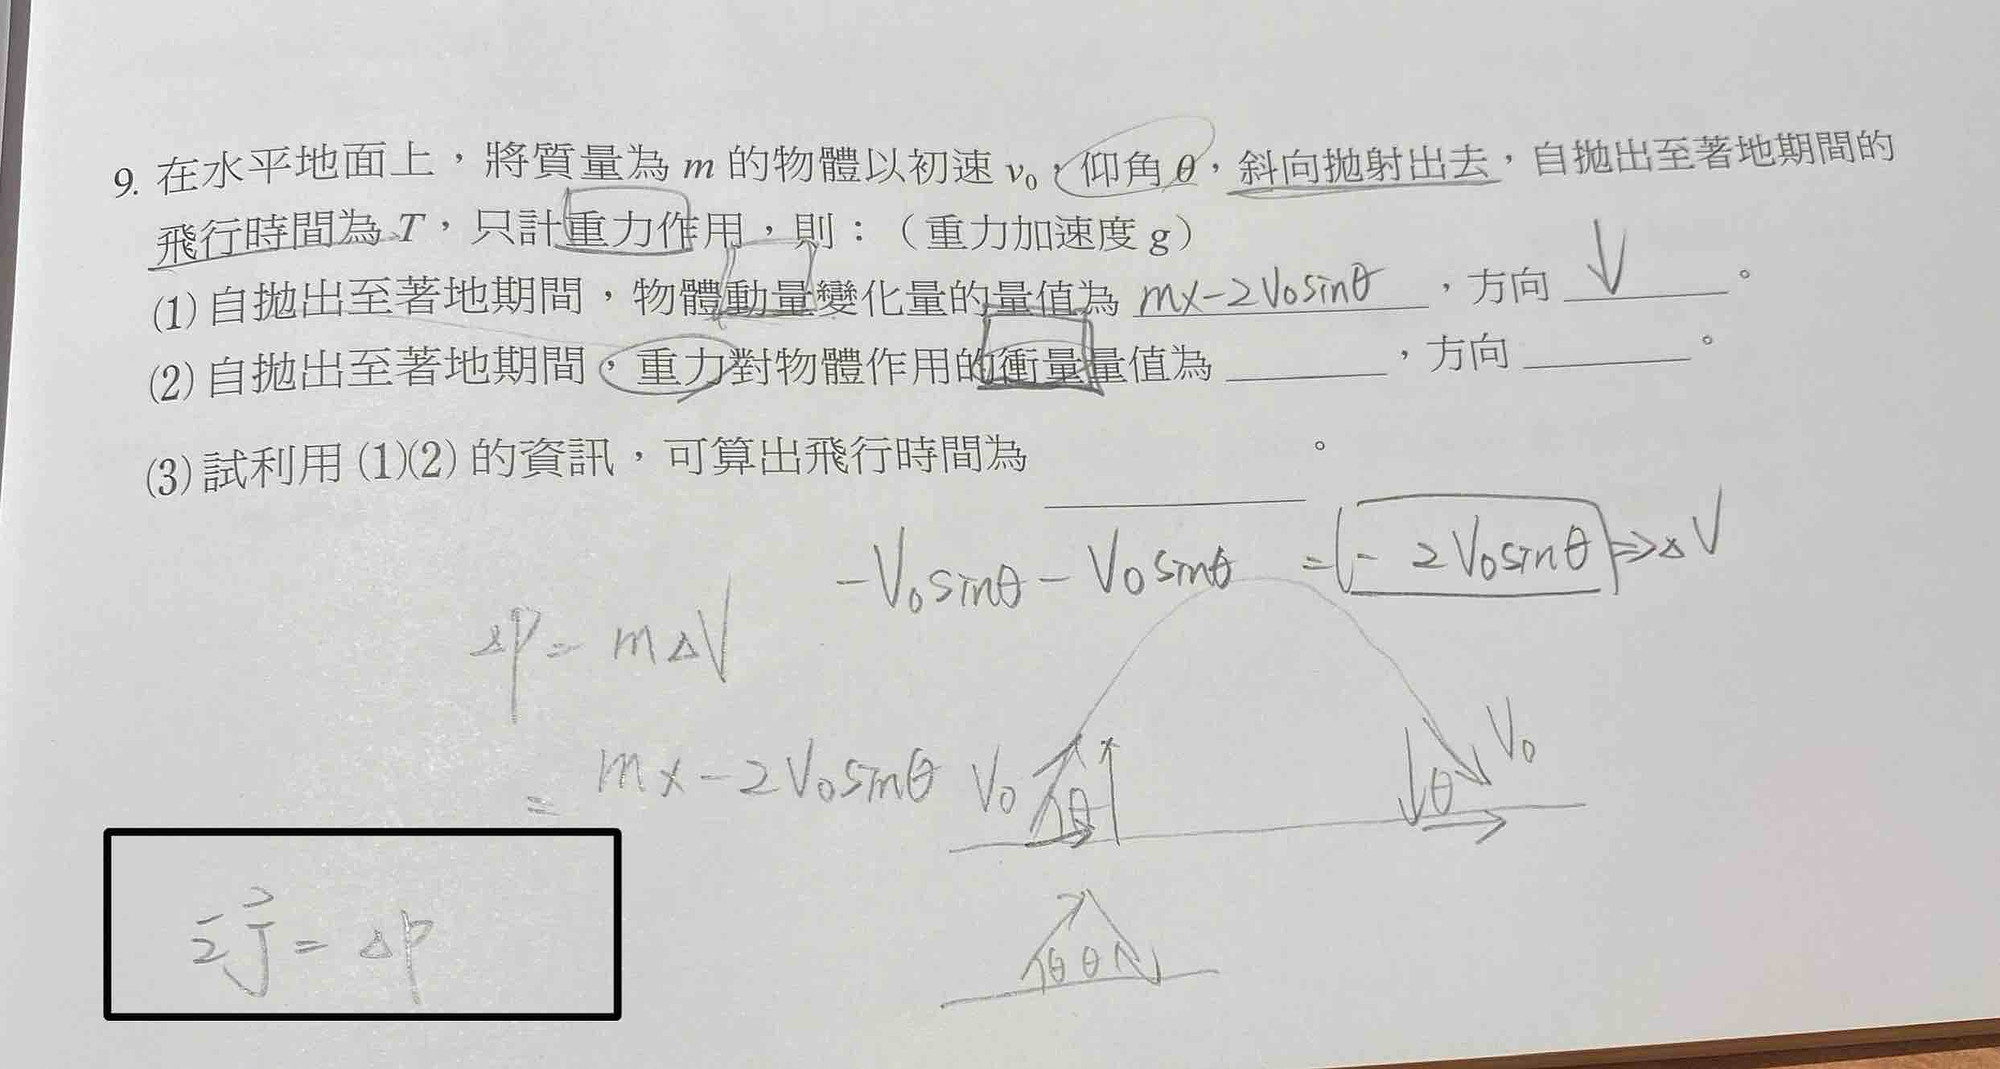 9. 在水平地面上，將質量為 m 的物體以初速 v₀，仰角 θ，斜向拋射出去，自拋出至著地期間的
飛行時間為 T，只計重力作用，則：（重力加速度 g）
(1) 自拋出至著地期間，物體動量變化量的量值為 mx-2V₀sinθ ，方向 ↓ 。
(2) 自拋出至著地期間，重力對物體作用的衝量量值為 ______ ，方向 ______ 。
(3) 試利用 (1)(2) 的資訊，可算出飛行時間為 ______ 。
-V₀sinθ - V₀sinθ = (- 2V₀sinθ) ⇒ △V
△P = m△V
= mx-2V₀sinθ
V₀ θ θ V₀
θ θ
J⃗ = △P